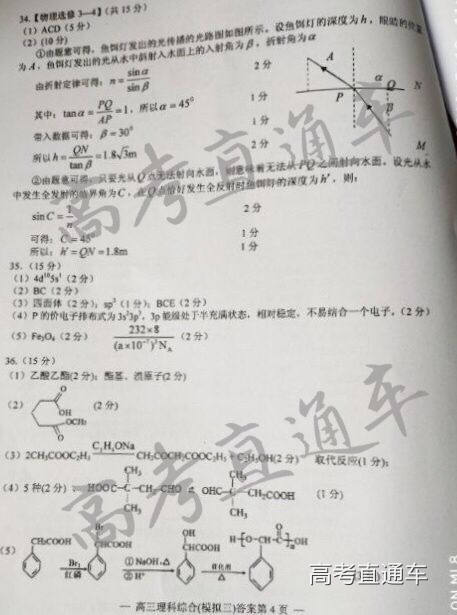 34.【物理选修 3—4】(共 15 分)
(1) ACD (5 分)
(2) (10 分)
①由题意可得,鱼饵灯发出的光传播的光路图如图所示,设鱼饵灯的深度为 h,眼睛的位置
为 A,鱼饵灯发出的光从水中斜射入水面上的入射角为 β,折射角为 α
由折射定律可得:n = sinα / sinβ 2 分
其中:tanα = PQ / AP = 1,所以 α = 45° 1 分
带入数据可得:β = 30° 1 分
所以 h = QN / tanβ = 1.8√3m 2 分
②由题意可得,只要光从 Q 点无法射向水面,则意味着无法从 PQ 之间射向水面,设光从水
中发生全发射的临界角为 C,在 Q 点恰好发生全反射时鱼饵灯的深度为 h′,则:
sin C = 1 / n 2 分
可得:C = 45° 1 分
所以:h′ = QN = 1.8m 1 分
A
α
Q
N
P
β
M
35.(15 分)
(1) 4d¹⁰5s¹ (2 分)
(2) BC (2 分)
(3) 四面体 (2 分);sp³ (1 分);BCE (2 分)
(4) P 的价电子排布式为 3s²3p³,3p 能级处于半充满状态,相对稳定,不易结合一个电子。(2 分)
(5) Fe₃O₄ (2 分) 232×8 / (a×10⁻⁷)³N_A (2 分)
36.(15 分)
(1) 乙酸乙酯(2 分);酯基、溴原子(2 分)
(2) O OH OCH₃ O (2 分)
(3) 2CH₃COOC₂H₅ C₂H₅ONa CH₃COCH₂COOC₂H₅ + C₂H₅OH(2 分) 取代反应(1 分);
(4) 5 种(2 分) HOOC-C-CH₂-CHO CH₃ CH₃ 或 OHC-C-CH₂COOH CH₃ CH₃ (1 分)
(5) CH₂COOH Br₂ 红磷 Br CHCOOH ①NaOH,△ ②H⁺ OH CHCOOH 催化剂 △ H-[O-CH-C]n-OH O
— 高三理科综合(模拟三)答案第 4 页 —
高考直通车
高考直通车
高考直通车